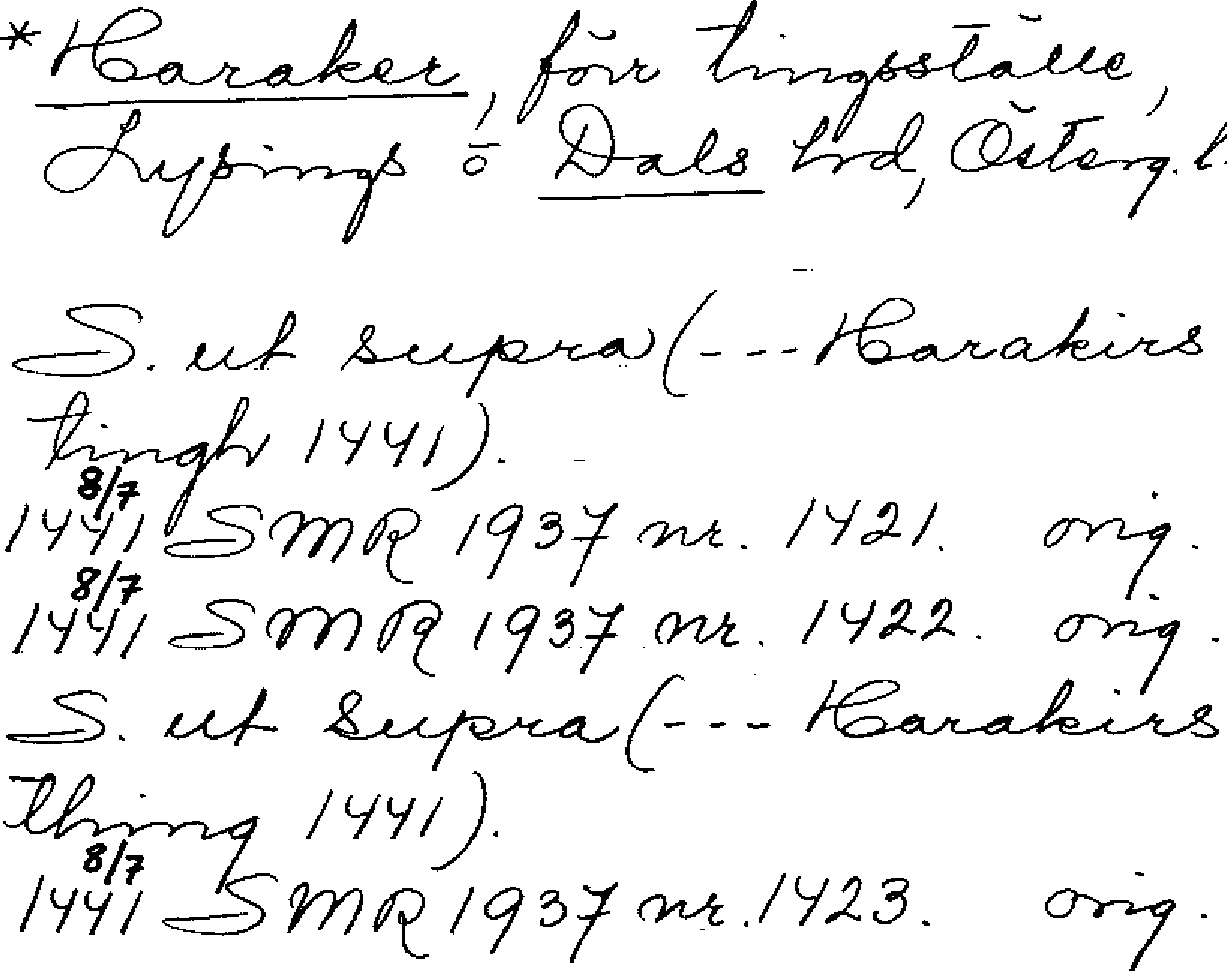 *Haraker, förr tingsställe,
Lysings o Dals hrd, Österg. l.
S. ut supra (--- Harakirs
tingh 1441).
8/7
1441 SMR 1937 nr. 1421. orig.
8/7
1441 SMR 1937 nr. 1422. orig.
S. ut supra (--- Harakirs
thing 1441).
8/7
1441 SMR 1937 nr. 1423. orig.